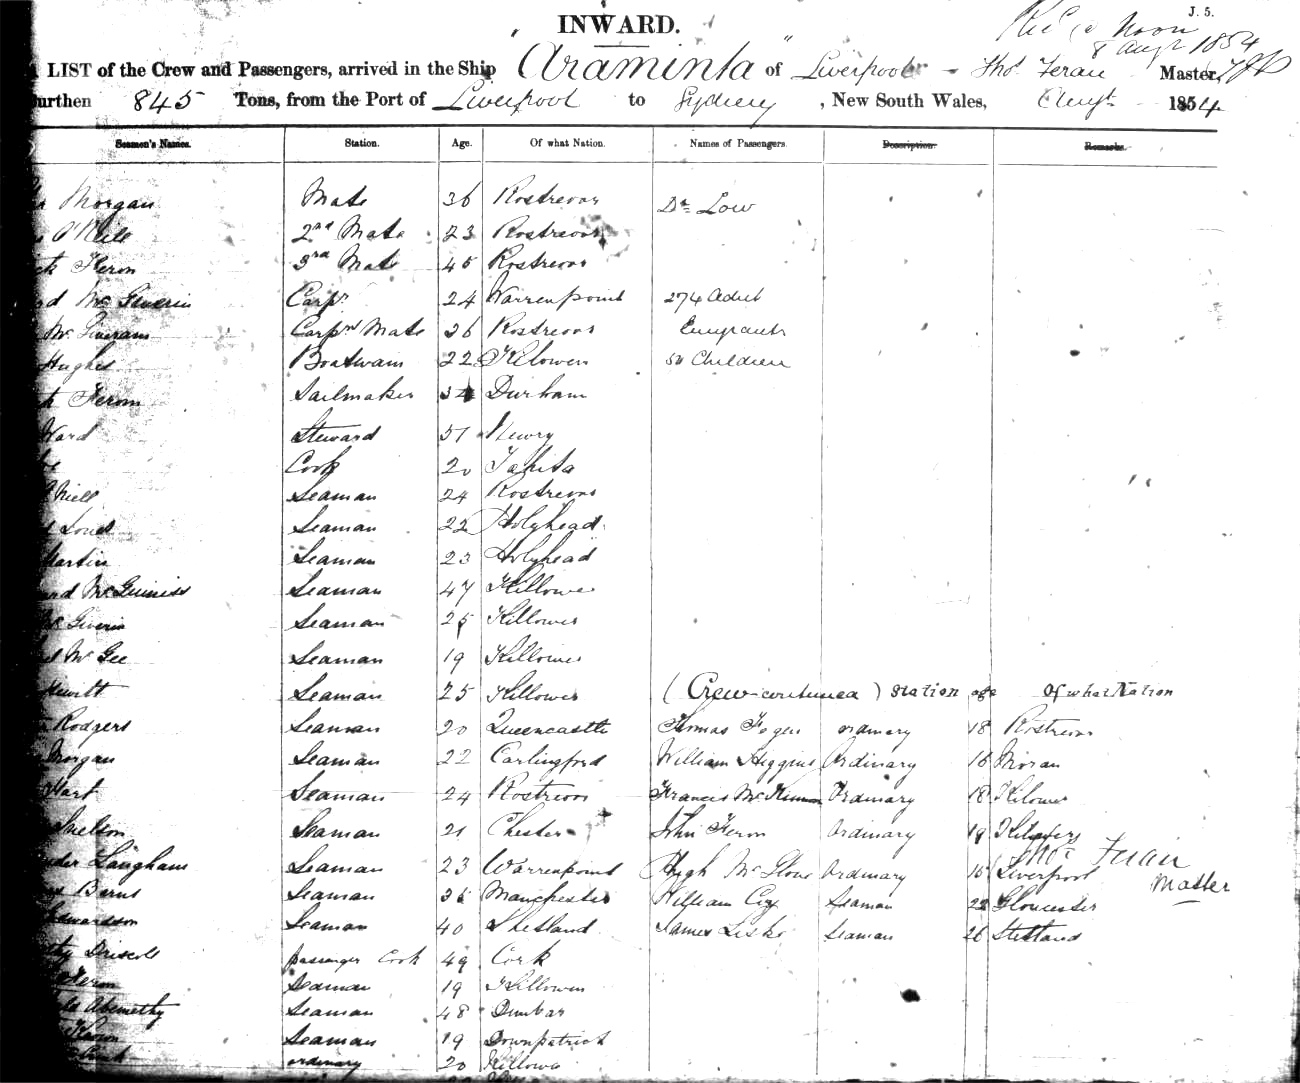 J. 5.
INWARD.
Noon
8 Augt 1854
LIST of the Crew and Passengers, arrived in the Ship "Araminta" of Liverpool - Thos. Feran Master,
Burthen 845 Tons, from the Port of Liverpool to Sydney, New South Wales, Augt. 1854
Seamen's Names. Station. Age. Of what Nation. Names of Passengers. Description. Remarks.
Morgan Mate 36 Rostrevor Dr. Low
O'Neill 2nd Mate 23 Rostrevor
Feron 3rd Mate 45 Rostrevor
McGiverin Carpr. 24 Warrenpoint 274 Adult
Carprs Mate 26 Rostrevor Emigrants
Hughes Boatswain 22 Kilowen 54 Children
Feron Sailmaker Durham
Ward Steward 51 Newry
Cook 20
Niell Seaman 24 Rostrevor
Seaman 22 Holyhead
Martin Seaman 23 Holyhead
McGuiniss Seaman 47 Killowen
McGiverin Seaman 25 Killowen
McGee Seaman 19 Killowen
Hewitt Seaman 25 Killowen (Crew continued) Station age Of what Nation
Rodgers Seaman 20 Queencastle Thomas ordinary 18 Rostrevor
Morgan Seaman 22 Carlingford William Higgins Ordinary 16
Hart Seaman 24 Rostrevor Francis McKinnon Ordinary 18 Kilowen
Seaman 21 Chester John Feron Ordinary 19
Langham Seaman 23 Warrenpoint Hugh McGlone Ordinary 15 Liverpool
Thos. Feran
Master
Seaman 35 Manchester William Cox Seaman 22 Gloucester
Edwardson Seaman 40 Shetland James Seaman 26 Shetland
Driscoll passenger Cook 49 Cork
Feron Seaman 19 Killowen
Abernethy Seaman 48 Dunbar
Seaman 19 Downpatrick
ordinary 20 Killowen